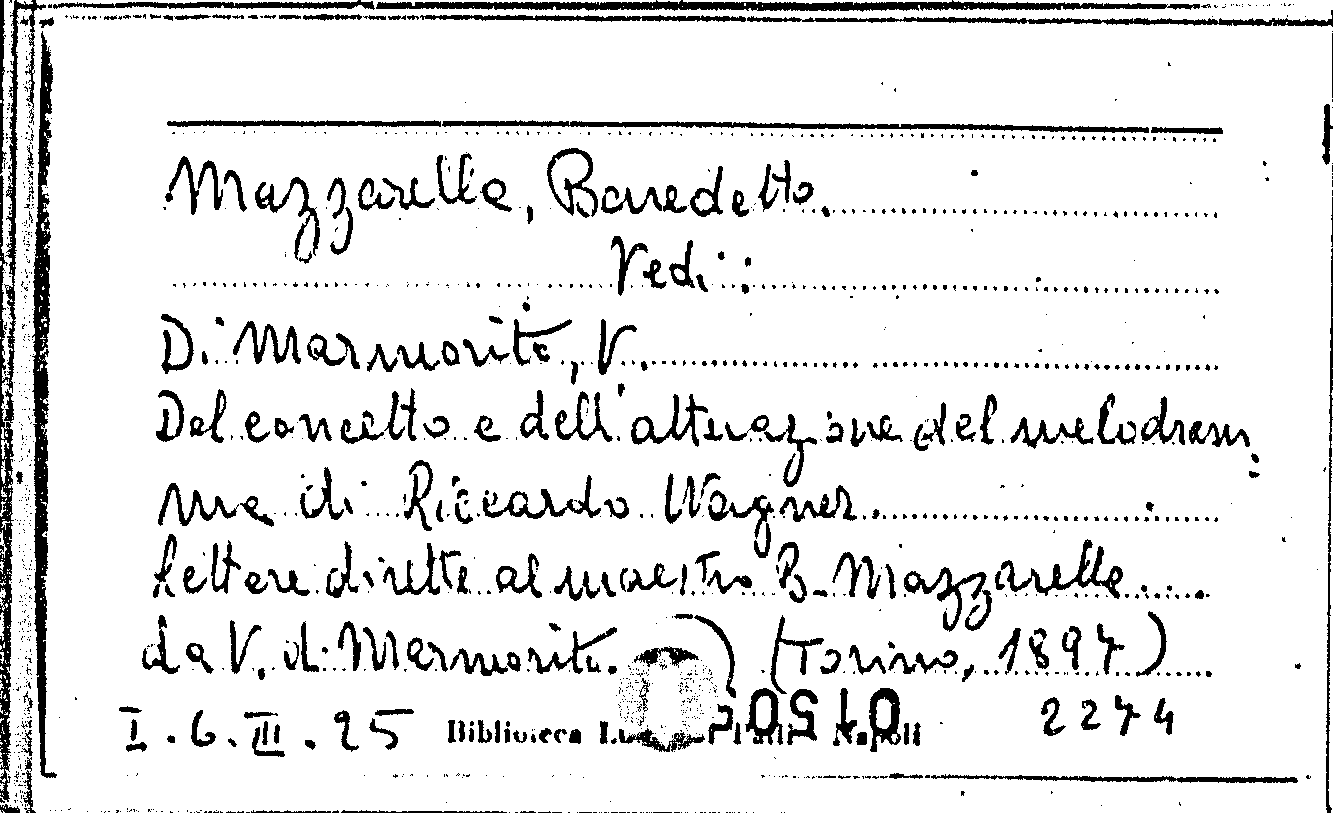 Mazzarella, Benedetto.
Vedi:
Di Marmorito, V.
Del concetto e dell'attuazione del melodram=
ma di Riccardo Wagner.
Lettere dirette al maestro B. Mazzarella...
da V. di Marmorito. (Torino, 1897)
I.6.III.25 Biblioteca Napoli 2274